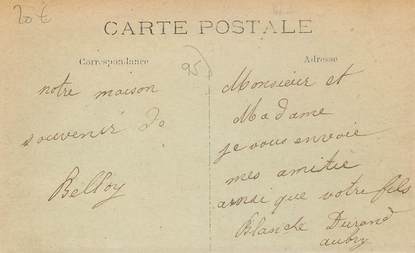 20 €
CARTE POSTALE
Correspondance
95)
Adresse
notre maison
souvenir do
Belloy
Monsieur et
Madame
je vous envoie
mes amitié
ainsi que votre fils
Blanche Durand
aubry